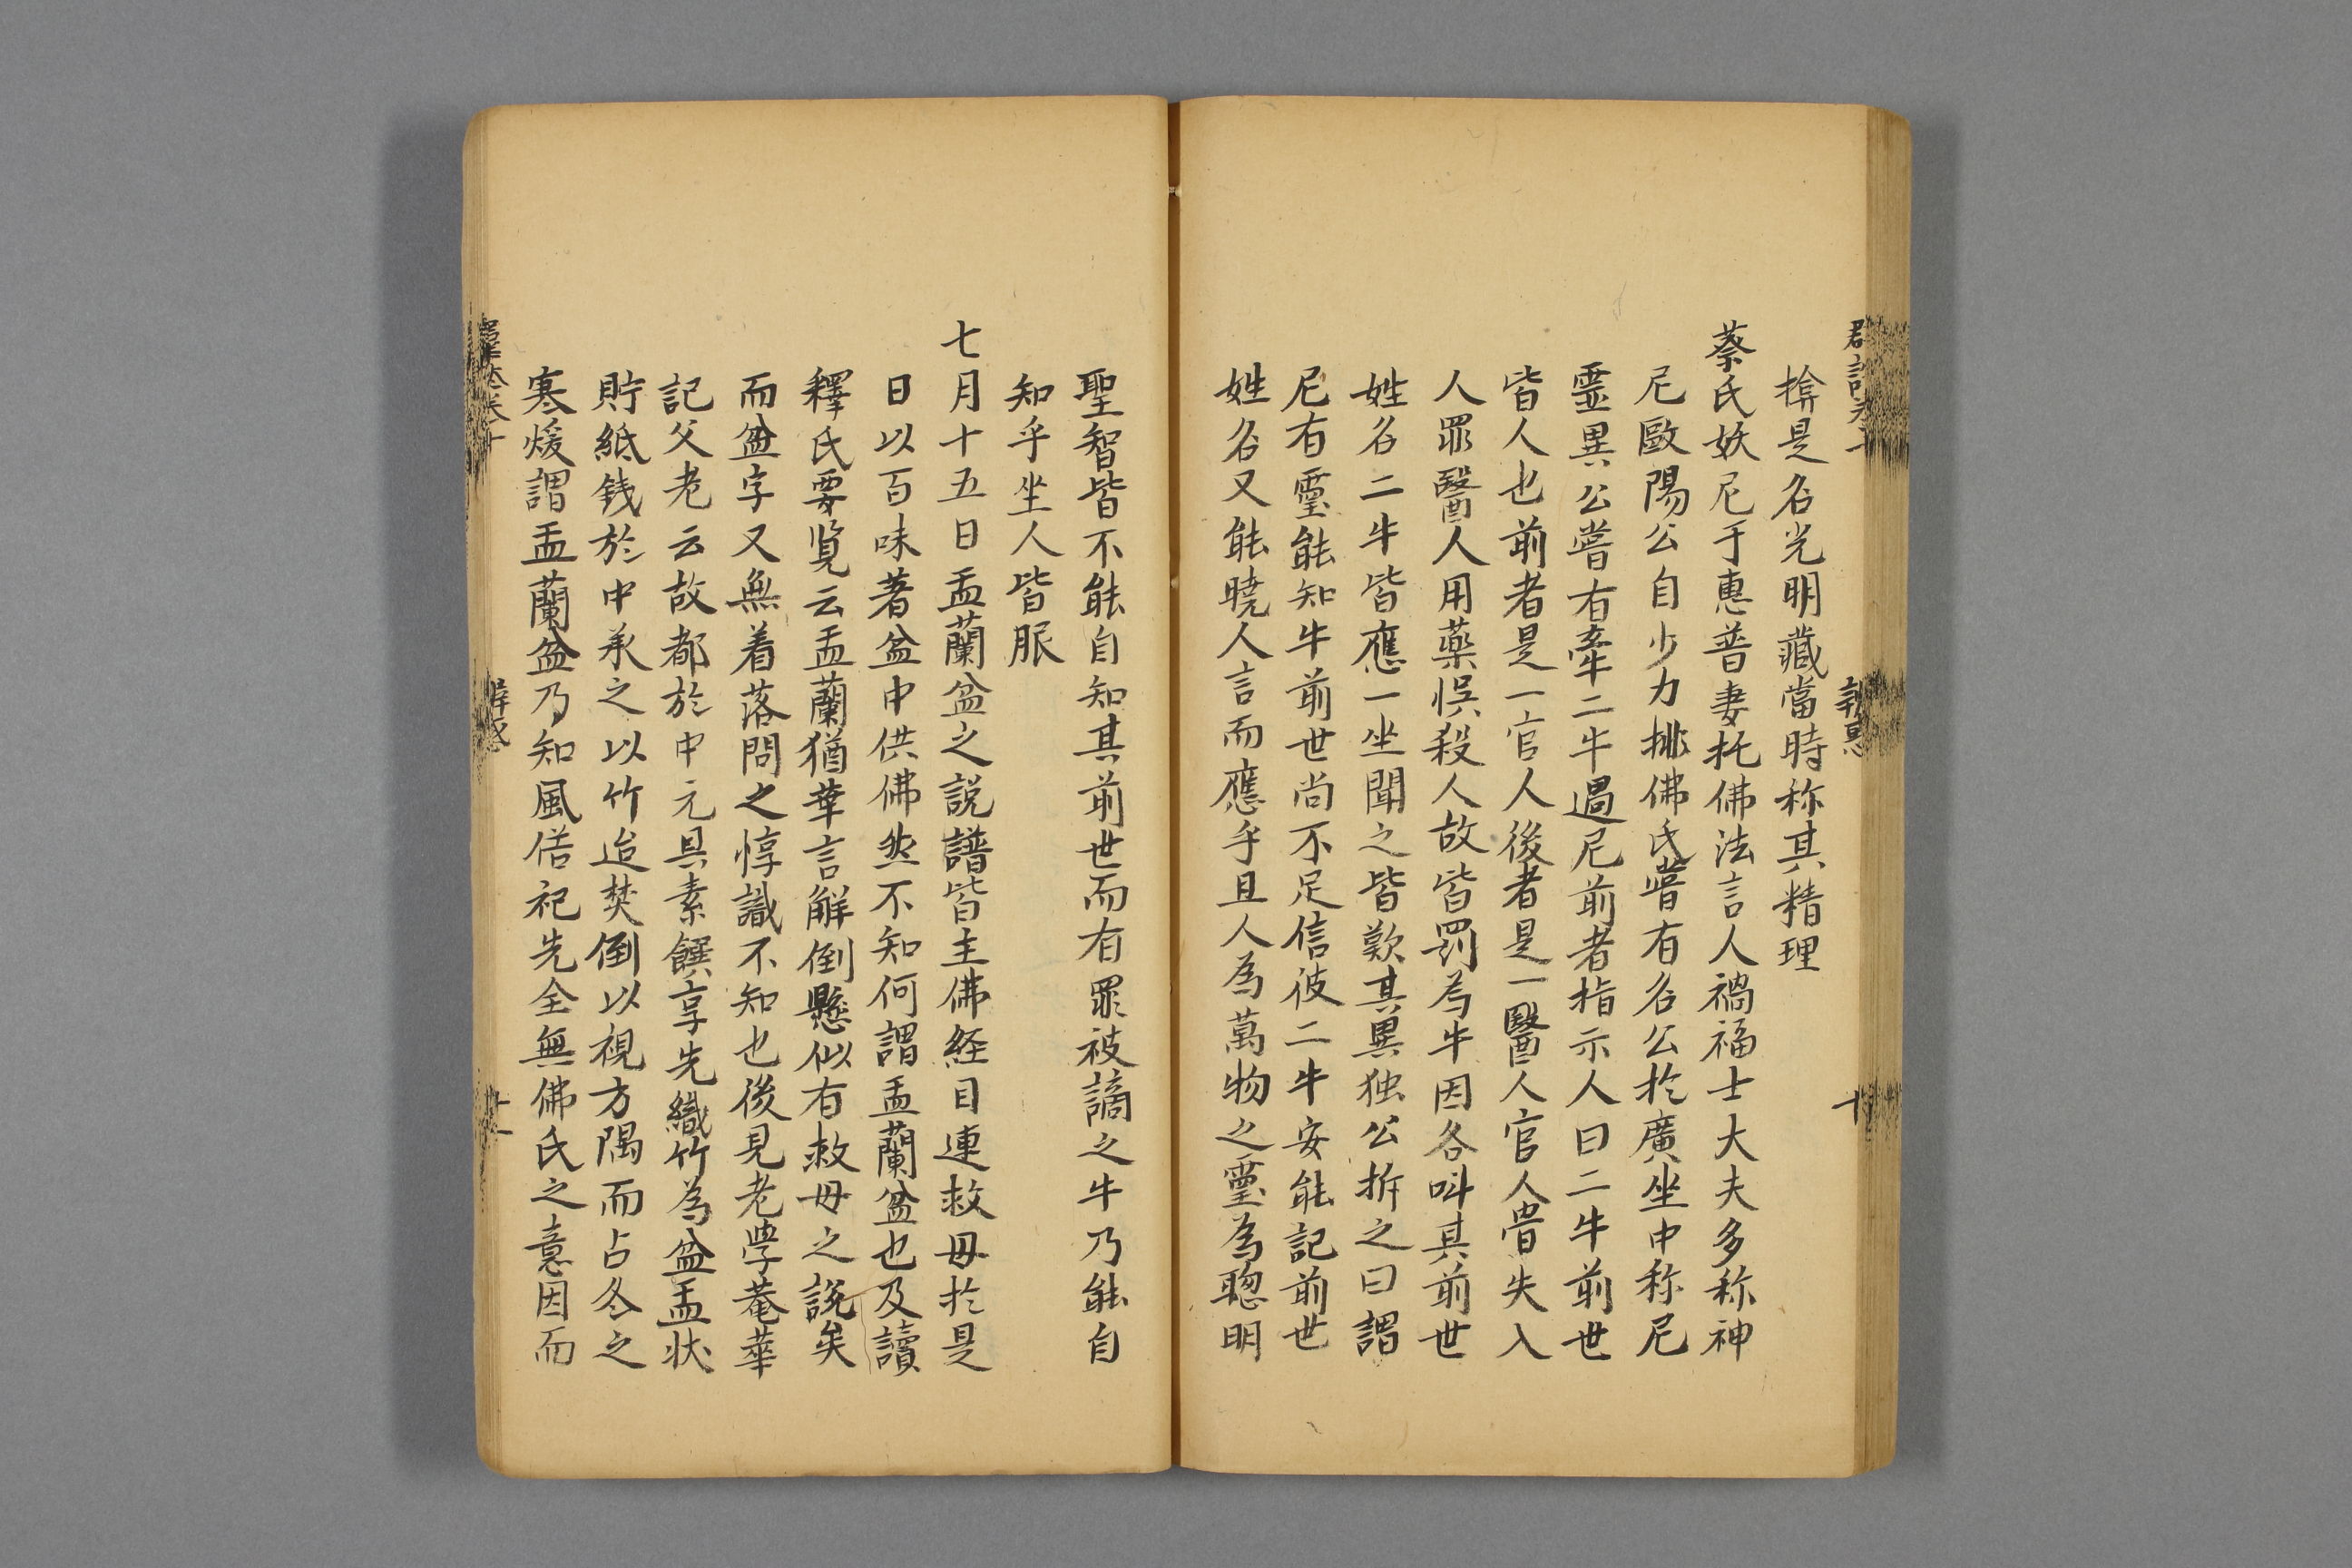 揜是名光明藏當時称其精理
蔡氏妖尼于惠普妻托佛法言人禍福士大夫多称神
尼歐陽公自少力排佛氏嘗有名公扵廣坐中称尼
霊異公嘗有牽二牛過尼前者指示人曰二牛前世
皆人也前者是一官人後者是一醫人官人甞失入
人罪醫人用藥悞殺人故皆罰為牛因各呌其前世
姓名二牛皆應一坐聞之皆歎其異独公折之曰謂
尼有靈能知牛前世尚不足信彼二牛安能記前世
姓名又能曉人言而應乎且人為萬物之靈為聰明
聖智皆不能自知其前世而有罪被謫之牛乃能自
知乎坐人皆服
七月十五日盂蘭盆之說譜皆主佛経目連救母扵是
日以百味著盆中供佛然不知何謂盂蘭盆也及讀
釋氏要覧云盂蘭猶華言解倒懸似有救母之說矣
而盆字又無着落問之惇識不知也後見老學菴華
記父老云故都於中元具素饌享先織竹為盆盂状
貯紙銭於中承之以竹迨焚倒以視方隅而占冬之
寒煖謂盂蘭盆乃知風俗祀先全無佛氏之意因而